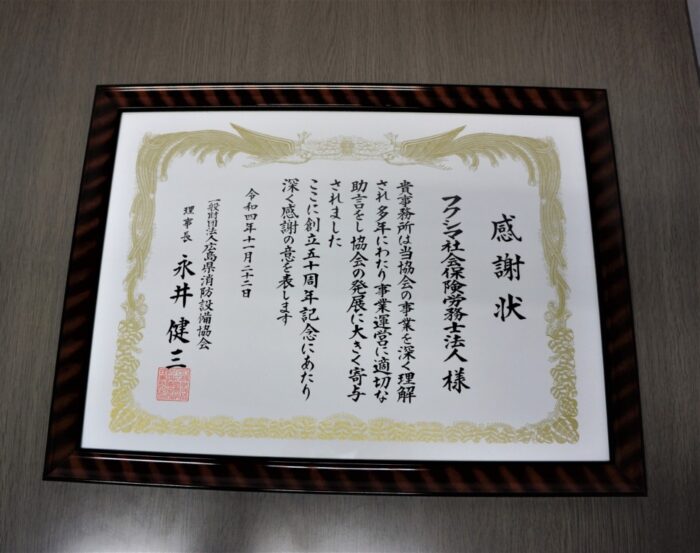 感謝状
フクシマ社会保険労務士法人 様
貴事務所は当協会の事業を深く理解
され多年にわたり事業運営に適切な
助言をし協会の発展に大きく寄与
されました
ここに創立五十周年記念にあたり
深く感謝の意を表します
令和四年十一月二十二日
一般財団法人広島県消防設備協会
理事長 永井健三